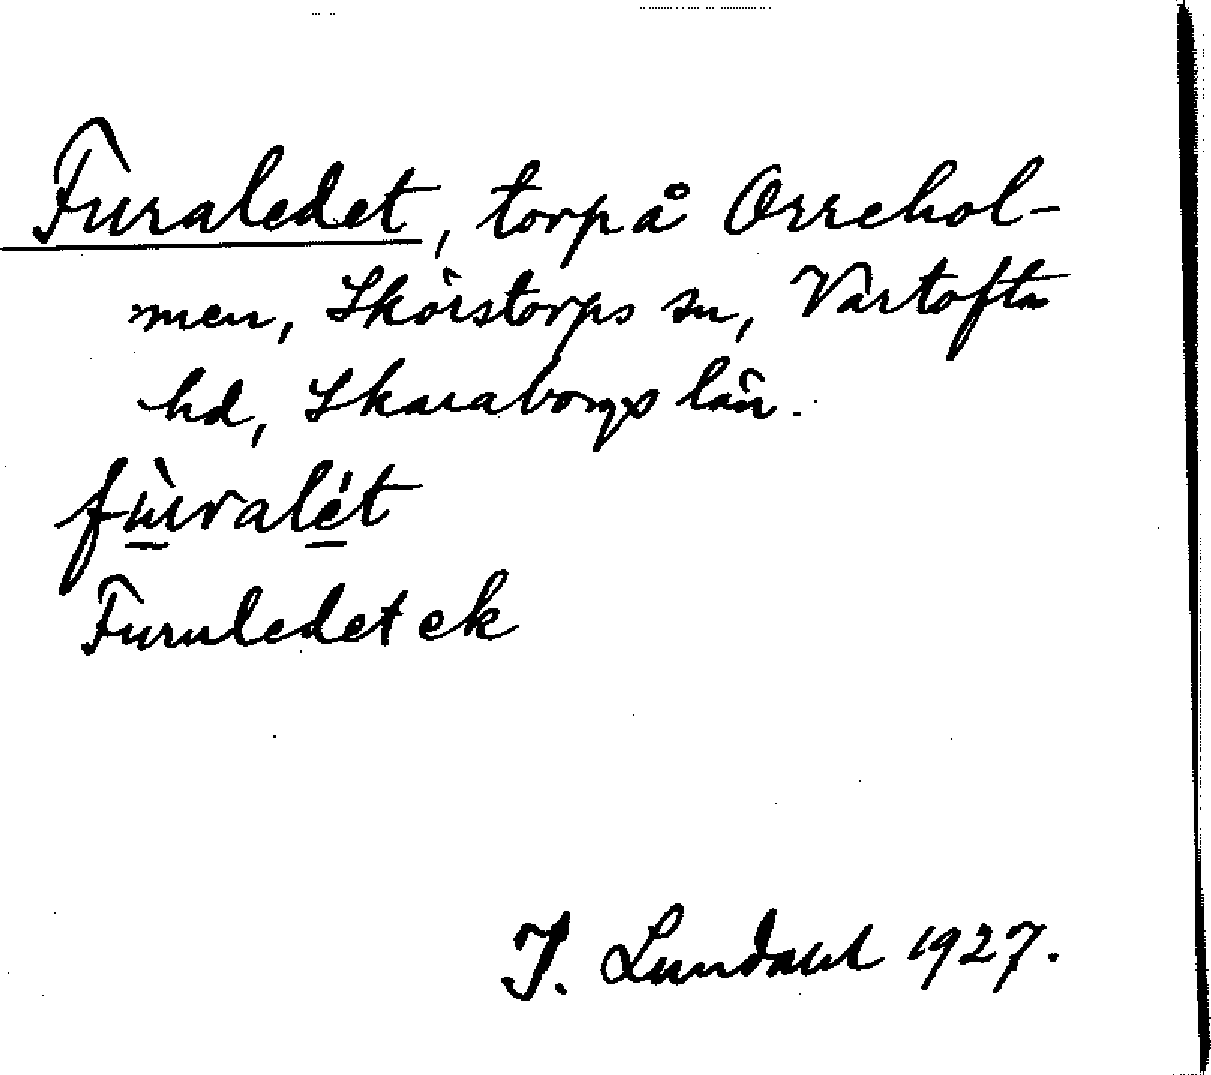 Furaledet, torp å Orrehol-
men, Skörstorps sn, Vartofta
hd, Skaraborgs län.
fùralét
Furuledet ek
J. Lundahl 1927.